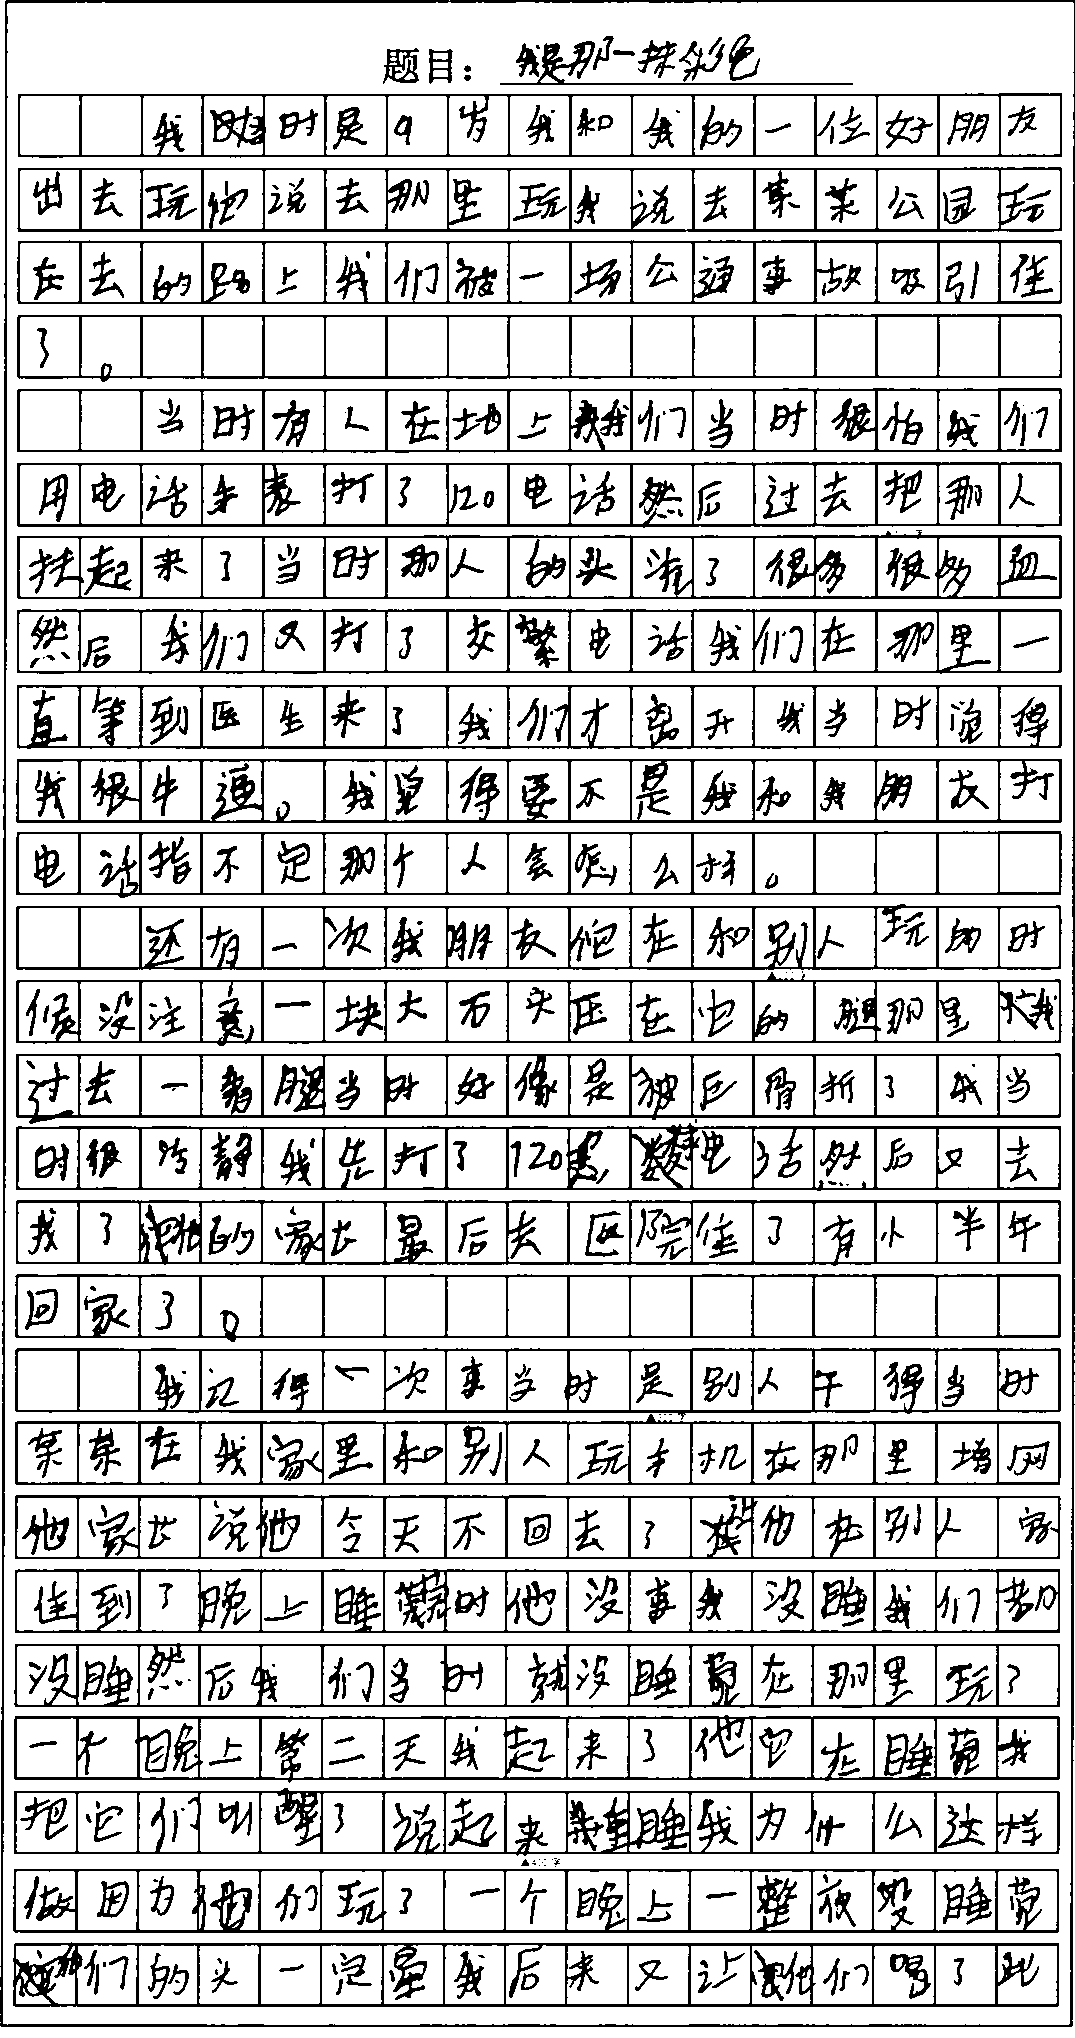 题目：我是那一抹彩色
我时时是9岁我和我的一位好朋友
出去玩他说去那里玩我说去某某公园玩
在去的路上我们被一场公通事故吸引住
了。
当时有人在地上我们当时很怕我们
用电话手表打了120电话然后过去把那人
扶起来了当时那人的头流了很多很多血
然后我们又打了交警电话我们在那里一
直等到医生来了我们才离开我当时觉得
我很牛逼。我觉得要不是我和我朋友打
电话指不定那个人会怎么样。
还有一次我朋友他在和别人玩的时
候没注意一块大石头压在它的腿那里我
过去一看腿当时好像是被压骨折了我当
时很冷静我先打了120电话然后又去
找了他的家长最后去医院住了有小半年
回家了。
我记得一次事当时是别人午得当时
某某在我家里和别人玩手机在那里增网
他家长说他今天不回去了让他在别人家
住到了晚上睡觉时他没事我没睡我们都
没睡然后我们当时就没睡觉在那里玩了
一个晚上第二天我起来了他它在睡觉我
把它们叫醒了说起来重睡我为什么这样
做因为他们玩了一个晚上一整夜没睡觉
他们的头一定晕我后来又让他们喝了一些